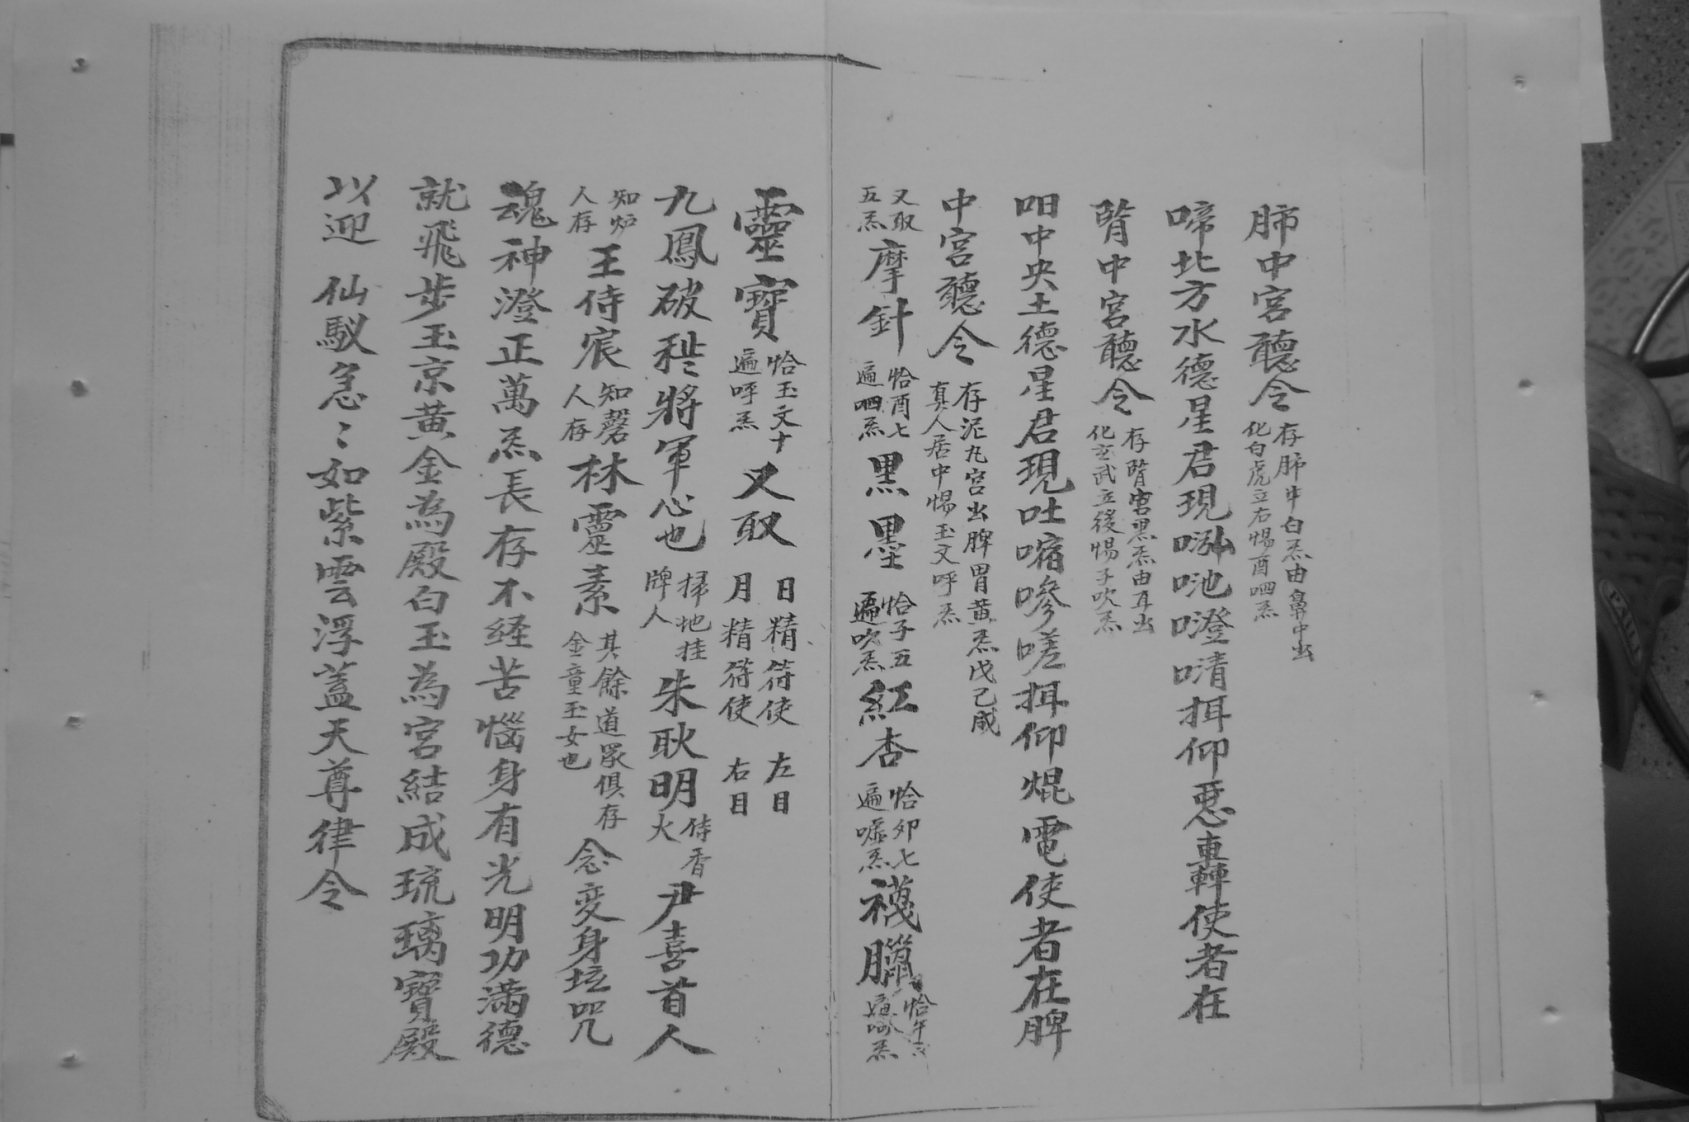 肺中宮聽令 存肺中白炁由鼻中出化白虎立右惕酉呬炁
啼北方水德星君現㘌吔噔啨揖仰惡轟使者在
腎中宮聽令 存腎宮黑炁由耳出化玄武立後惕子吹炁
呬中央土德星君現吐嘧嘇嗟揖仰焜電使者在脾
中宮聽令 存泥丸宮出脾胃黃炁戊己咸真人居中惕玉文呼炁
又取五炁 摩針 恰酉七遍呬炁 黑墨 恰子五遍吹炁 紅杏 恰卯七遍噓炁 襪臘
靈寶 恰玉文十遍呼炁 又取 日精符使 左目 月精符使 右目
九鳳破穢將軍心也 掃地挂牌人 朱耿明 侍香火 尹喜首人
知炉人存 王侍宸 知磬人存 林靈素 其餘道眾俱存金童玉女也 念变身坛咒
魂神澄正萬炁長存不经苦惱身有光明功滿德
就飛步玉京黄金為殿白玉為宮結成琉璃寶殿
以迎 仙馭急〻如紫雲浮蓋天尊律令
PAUL